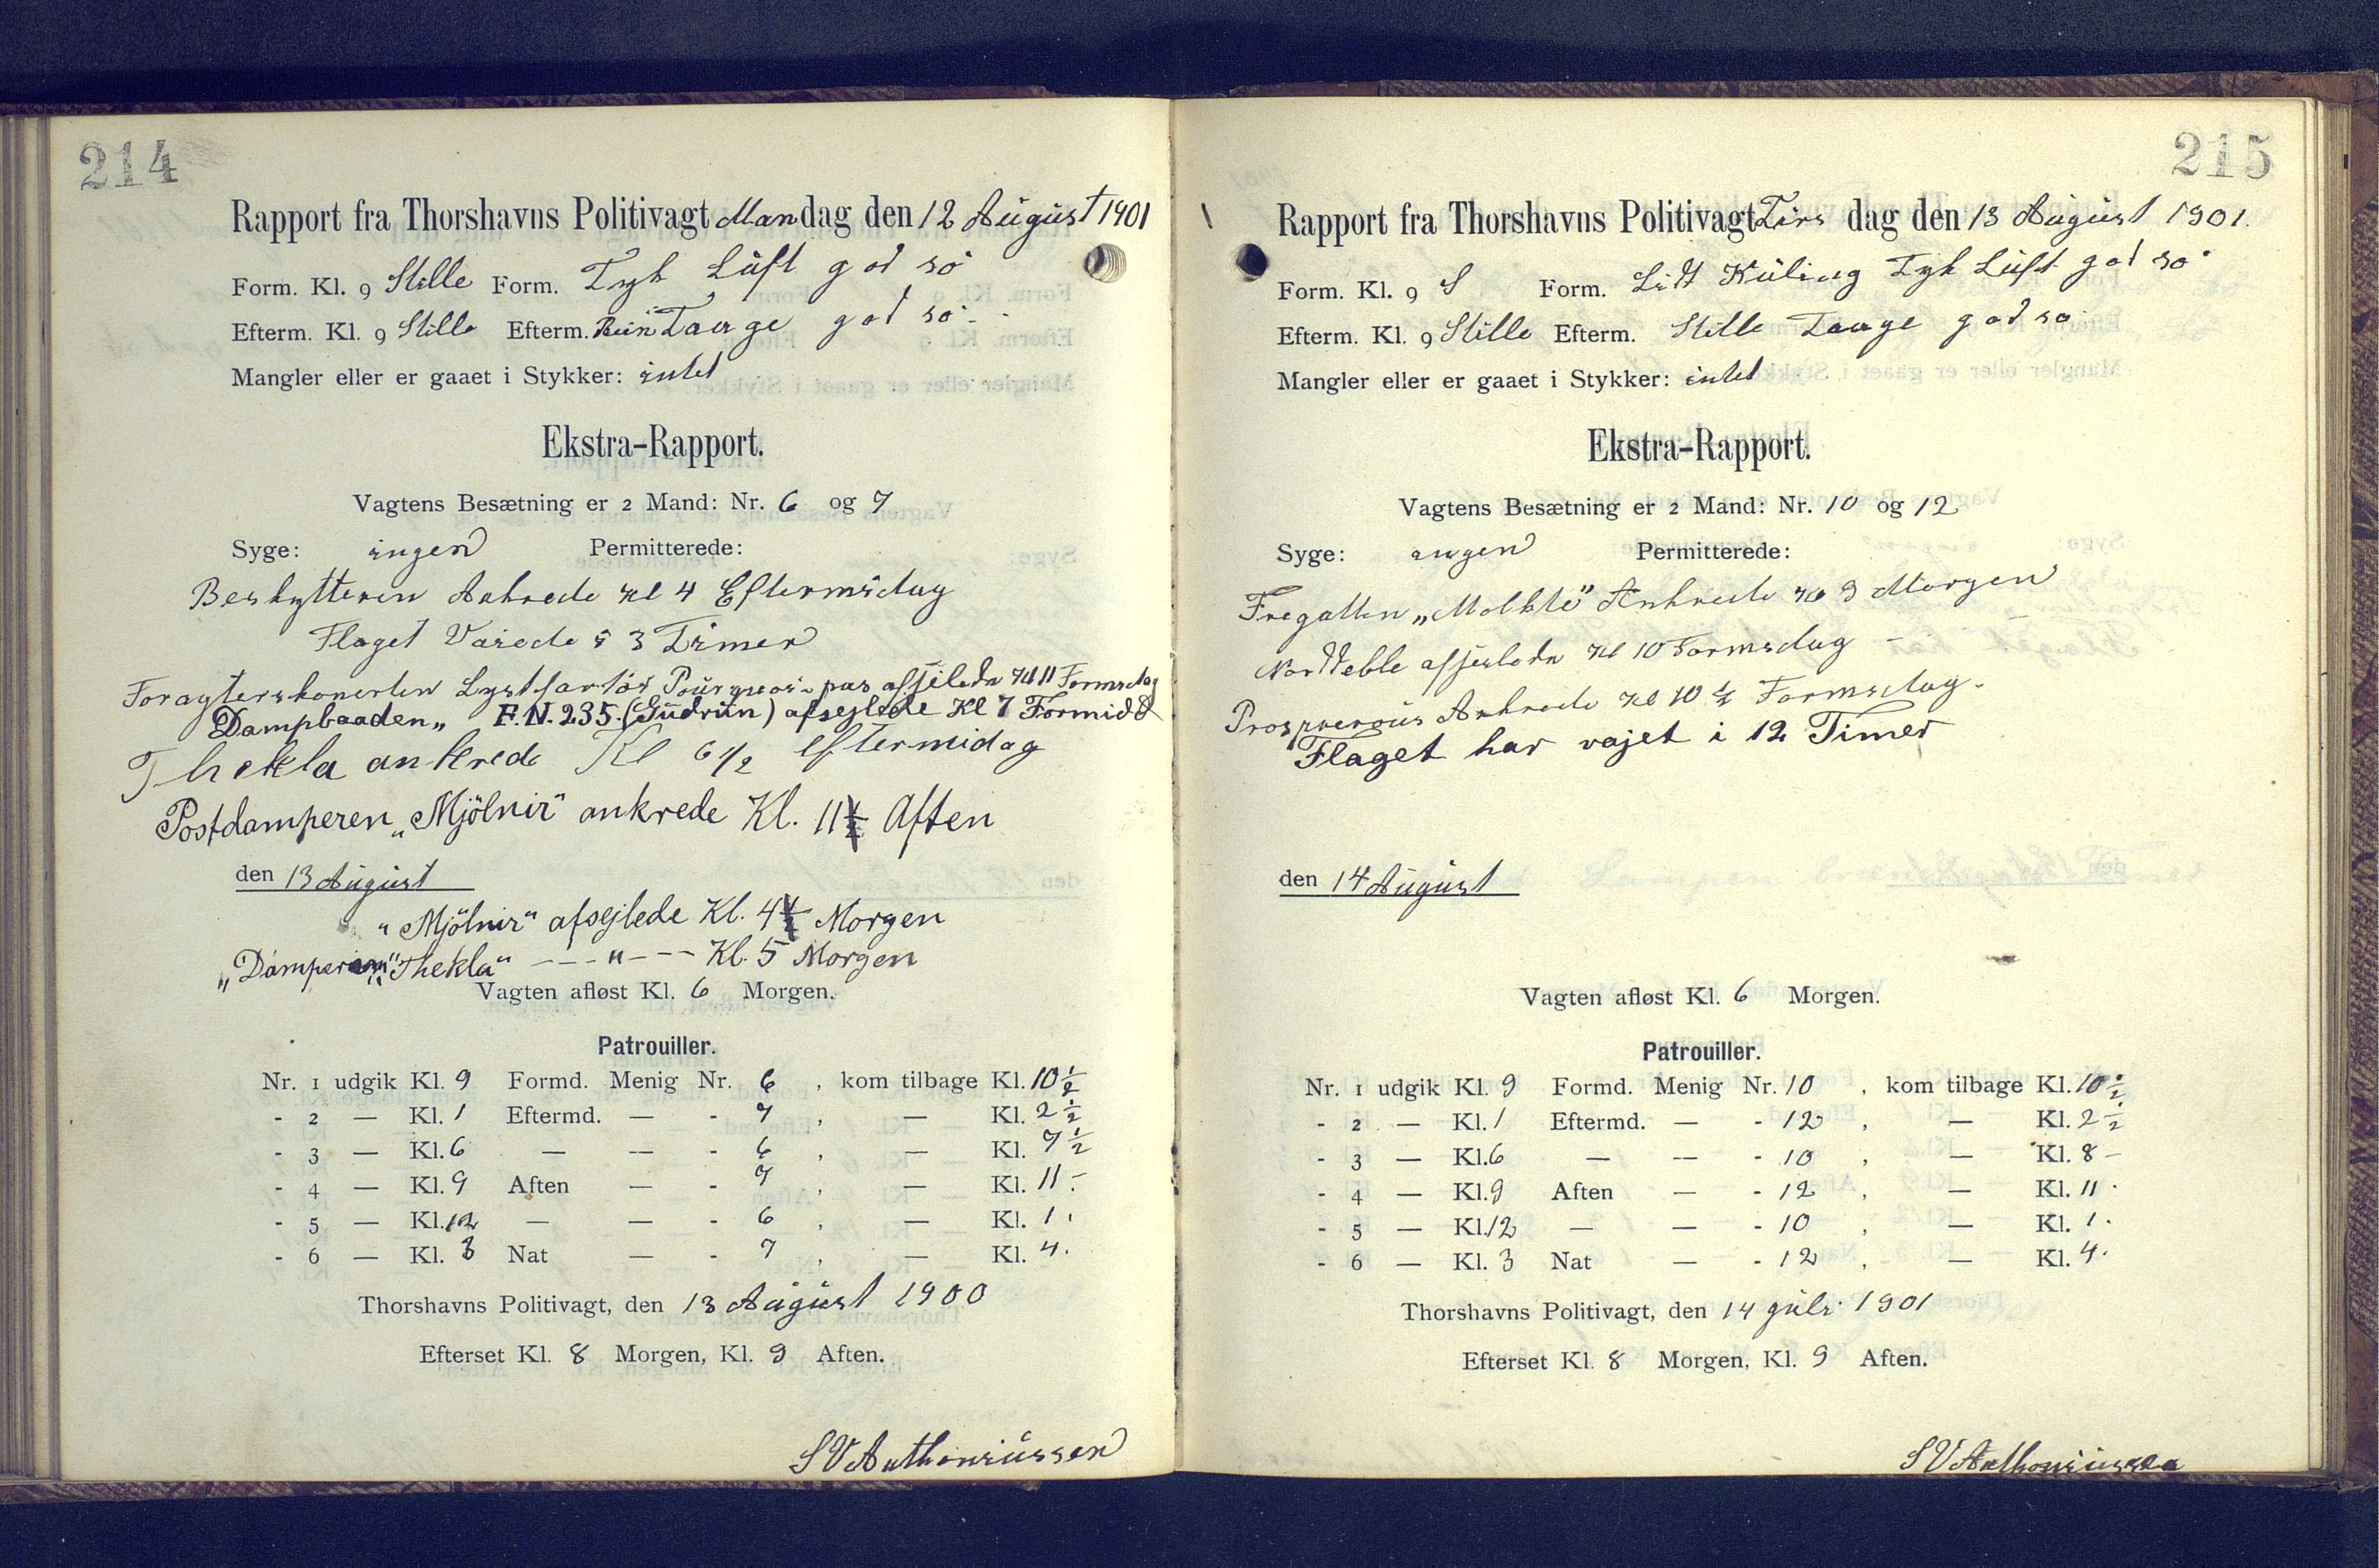 214
Rapport fra Thorshavns Politivagt Mandag den 12 August 1901
Form. Kl. 9 Stille Form. Tyk Luft god sø
Efterm. Kl. 9 Stille Efterm. Taage god sø
Mangler eller er gaaet i Stykker: intet
Ekstra-Rapport.
Vagtens Besætning er 2 Mand: Nr. 6 og 7
Syge: ingen Permitterede:
Beskytteren Ankrede kl 4 Eftermidag
Flaget Vaiede i 3 Timer
Lystfartøi Kl 11 Formidag
Dampbaaden„ F.N.235.(Gudrun) afsejlede Kl 7 Formidd
Thekla ankrede Kl 6 1/2 eftermidag
Postdamperen „Mjölnir" ankrede Kl. 11 Aften
den 13 August
„Mjölnir" afsejlede Kl. 4 Morgen
„Damperen „Thekla" - - - " - - - Kl. 5 Morgen
Vagten afløst Kl. 6 Morgen.
Patrouiller.
Nr. 1 udgik Kl. 9 Formd. Menig Nr. 6, kom tilbage Kl. 10 1/2
- 2 — Kl. 1 Eftermd. — - 7, — Kl. 2 1/2
- 3 — Kl. 6 — — - 6, — Kl. 7 1/2
- 4 — Kl. 9 Aften — - 7, — Kl. 11 -
- 5 — Kl. 12 — — - 6, — Kl. 1.
- 6 — Kl. 3 Nat — - 7, — Kl. 4.
Thorshavns Politivagt, den 13 August 1900
Efterset Kl. 8 Morgen, Kl. 9 Aften.
S V Anthoniussen
215
Rapport fra Thorshavns Politivagt Tirsdag den 13 August 1901.
Form. Kl. 9 S Form. Lidt Kuling Tyk Luft god sø
Efterm. Kl. 9 Stille Efterm. Stille Taage god sø
Mangler eller er gaaet i Stykker: intet
Ekstra-Rapport.
Vagtens Besætning er 2 Mand: Nr. 10 og 12
Syge: ingen Permitterede:
Fregatten „Molkte" Ankrede Kl 9 Morgen
Kl 10 Formidag
Ankrede Kl 10 1/2 Formidag.
Flaget har vajet i 12 Timer
den 14 August
Vagten afløst Kl. 6 Morgen.
Patrouiller.
Nr. 1 udgik Kl. 9 Formd. Menig Nr. 10, kom tilbage Kl. 10 1/2
- 2 — Kl. 1 Eftermd. — - 12, — Kl. 2 1/2
- 3 — Kl. 6 — — - 10, — Kl. 8 -
- 4 — Kl. 9 Aften — - 12, — Kl. 11.
- 5 — Kl. 12 — — - 10, — Kl. 1.
- 6 — Kl. 3 Nat — - 12, — Kl. 4.
Thorshavns Politivagt, den 14 juli 1901
Efterset Kl. 8 Morgen, Kl. 9 Aften.
S V Anthoniussen